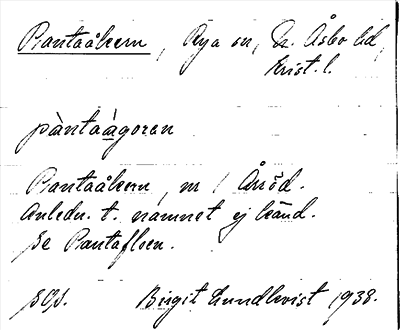 Pantaåkern, Rya sn, N. Åsbo hd,
Krist. l.
pàntaágoren
Pantaåkern, m / Årröd.
Anledn. t. namnet ej känd.
Se Pantafloen.
Birgit Lundkvist 1938.